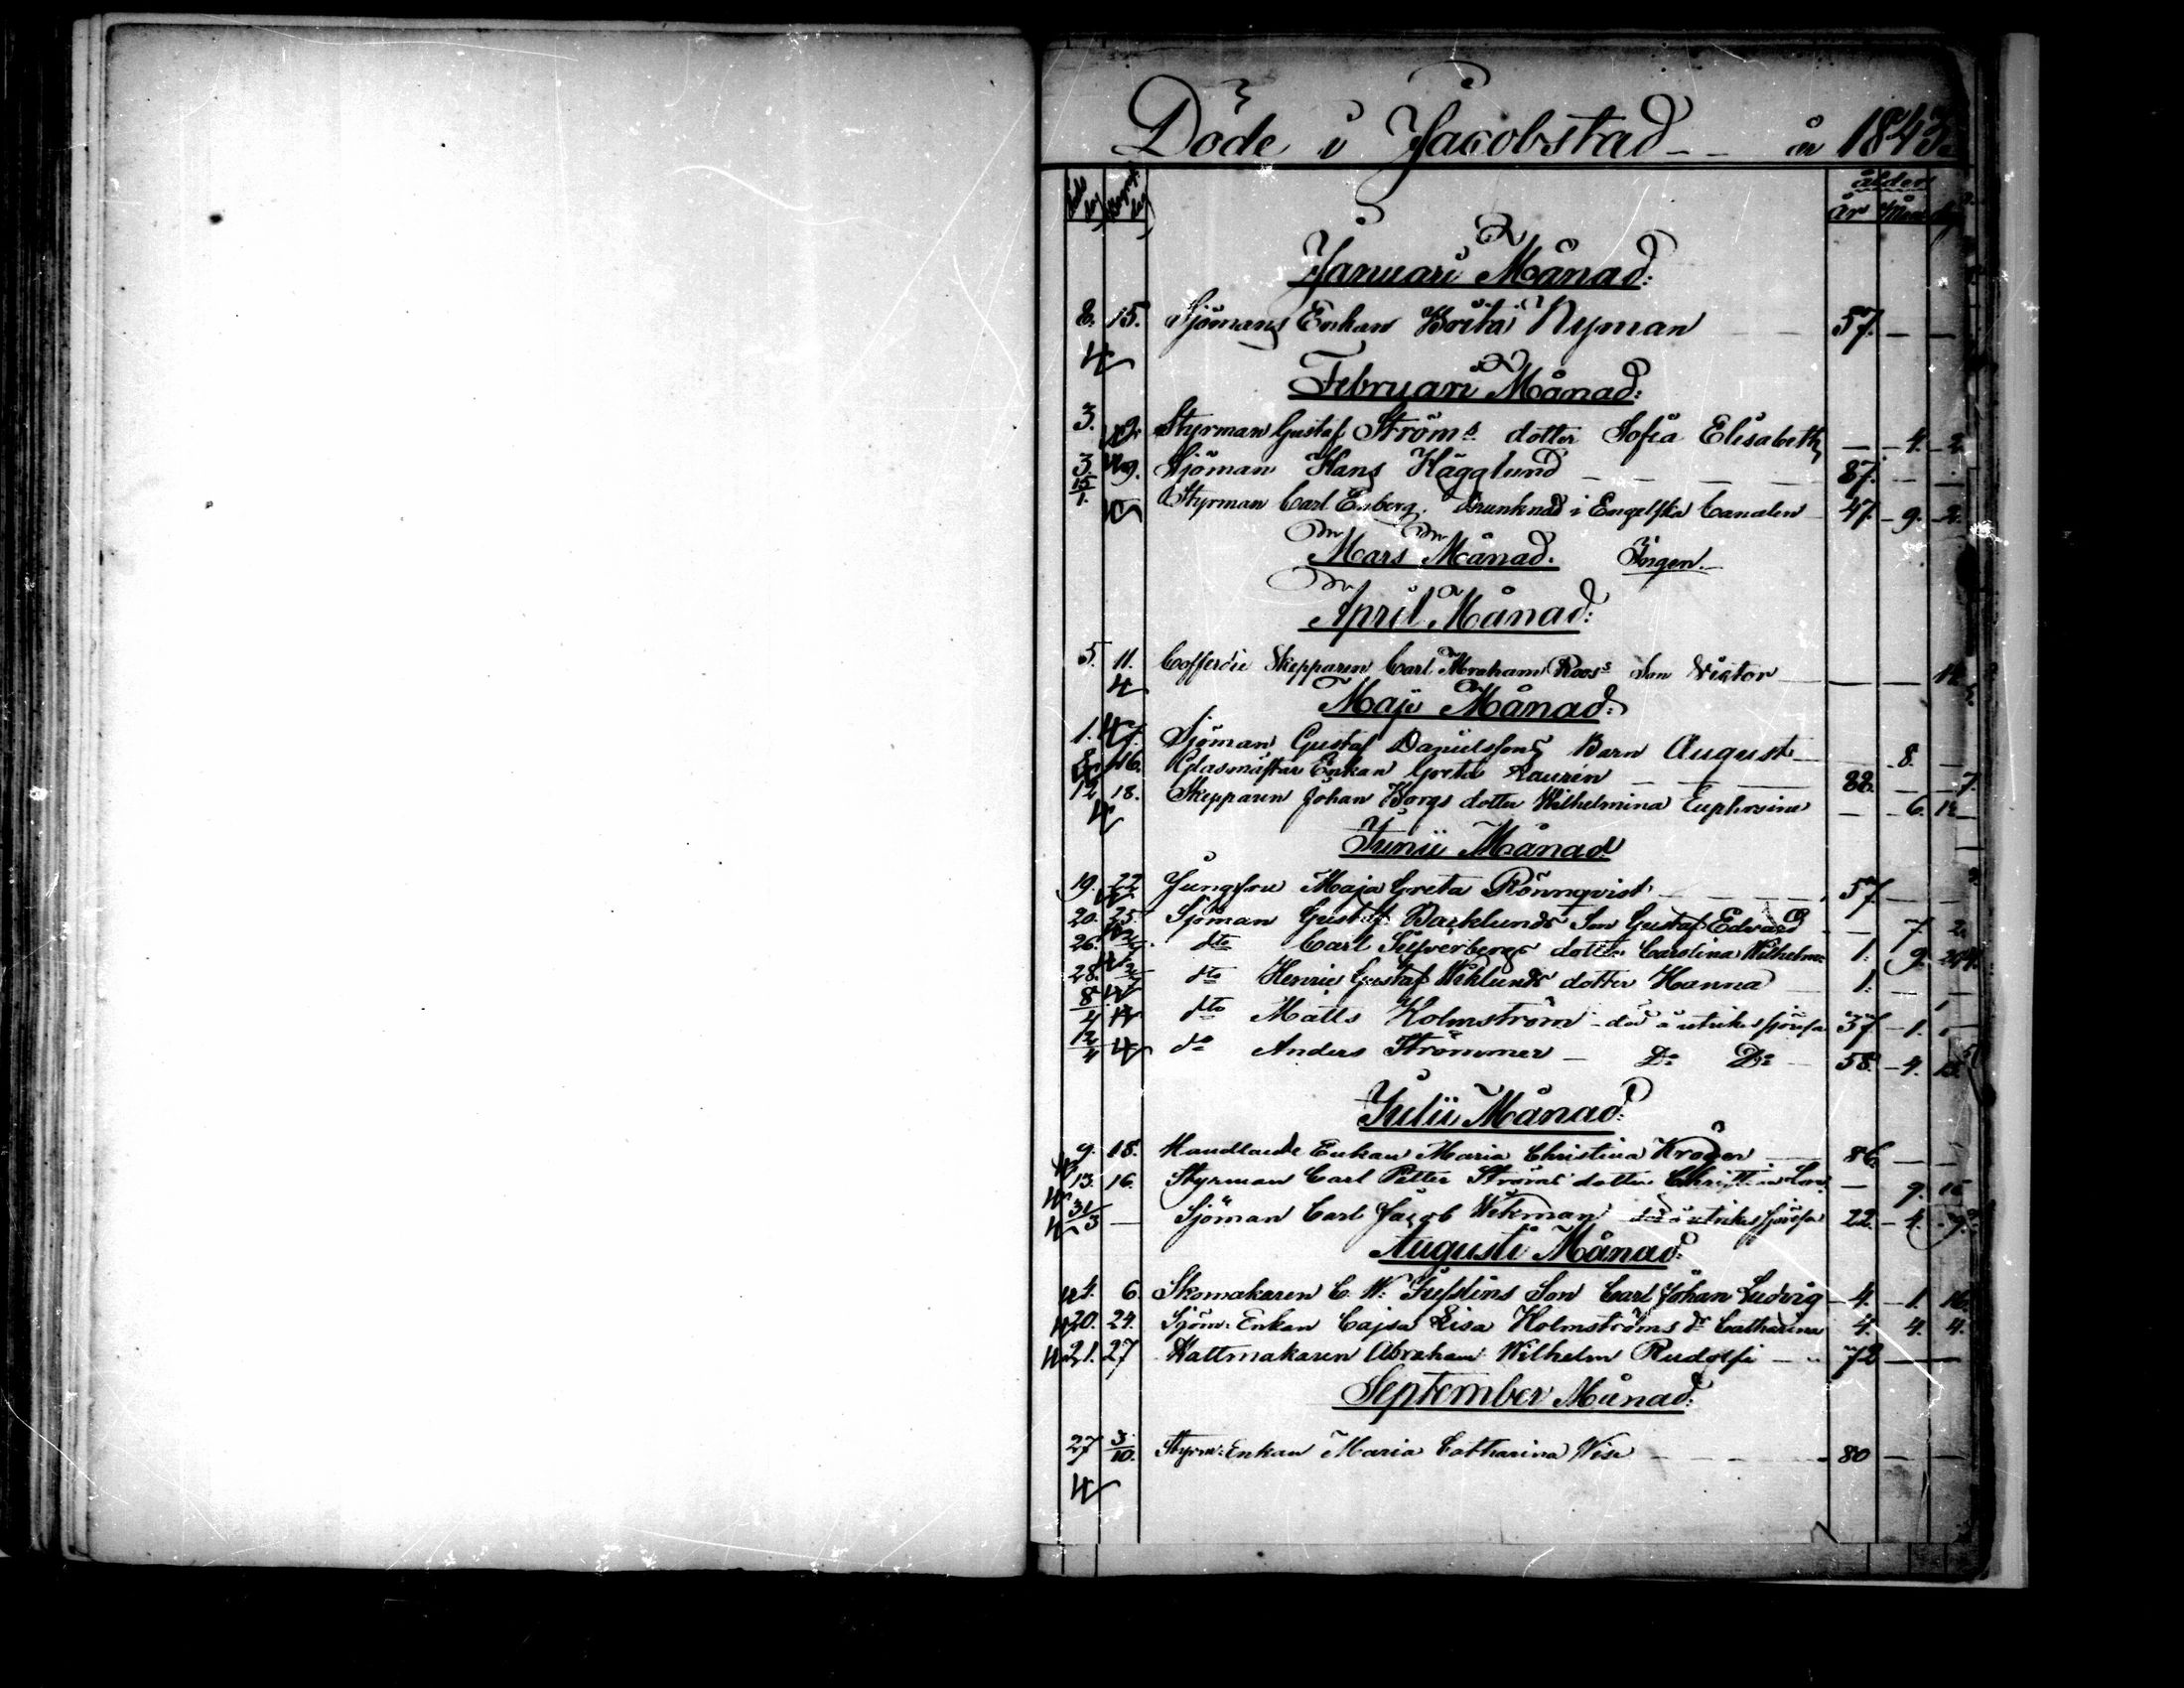 Döde i Jacobstad år 1843
ålder
år Mån dag
Januari Månad:
8. 15. Sjömans Enkan Brita Nyman 57. — —
Februari Månad:
3. 9. Styrman Gustaf Ströms dotter Sofia Elisabeth — 4. 2.
3. 9. Sjöman Hans Hägglund 87. — —
15/1. Styrman Carl Enberg. drunknad i Engelska Canalen 47. 9. 2.
Mars Månad. Ingen.
April Månad:
5. 11. Cofferdie Skepparen Carl Abraham Roos's Son Victor — —
Maji Månad:
1. 7. Sjöman Gustaf Danielssons Barn August — 8. —
16. Glasmästar Enkan Greta Laurén 88. — 7.
12. 18. Skepparen Johan Borgs dotter Wilhelmina Euphrosine — 6. 12
Junii Månad
19. 22 Jungfru Maja Greta Rönnqvist 57. — —
20. 25. Sjöman Gustaf Backlunds Son Gustaf Edvard — 7. 2.
26. dto Carl Silfverbergs dotter Carolina Wilhelm: 1. 9.
28. dto Henric Gustaf Wiklunds dotter Hanna 1. — —
8/4 dto Matts Holmström död å utrikes sjöresa 37 1.
12/4 do Anders Strömmer — Do Do 58. 4. 13.
Julii Månad:
9. 18. Handlande Enkan Maria Christina Kroger 86. — —
13. 16. Styrman Carl Petter Ströms dotter — 9. 15
31/3 — Sjöman Carl Jacob Wikman död å utrikes sjöresa 22. 4. 9.
Augusti Månad:
4. 6. Skomakaren C. W. Son Carl Johan Ludvig 4. 1. 16.
20. 24. Sjöm: Enkan Cajsa Lisa Holmströms dr Catharina 4. 4. 4.
21. 27 Hattmakaren Abraham Wilhelm Rudolfi 72 —
September Månad:
27 3/10. Styrm: Enkan Maria Catharina Wise 80 — —